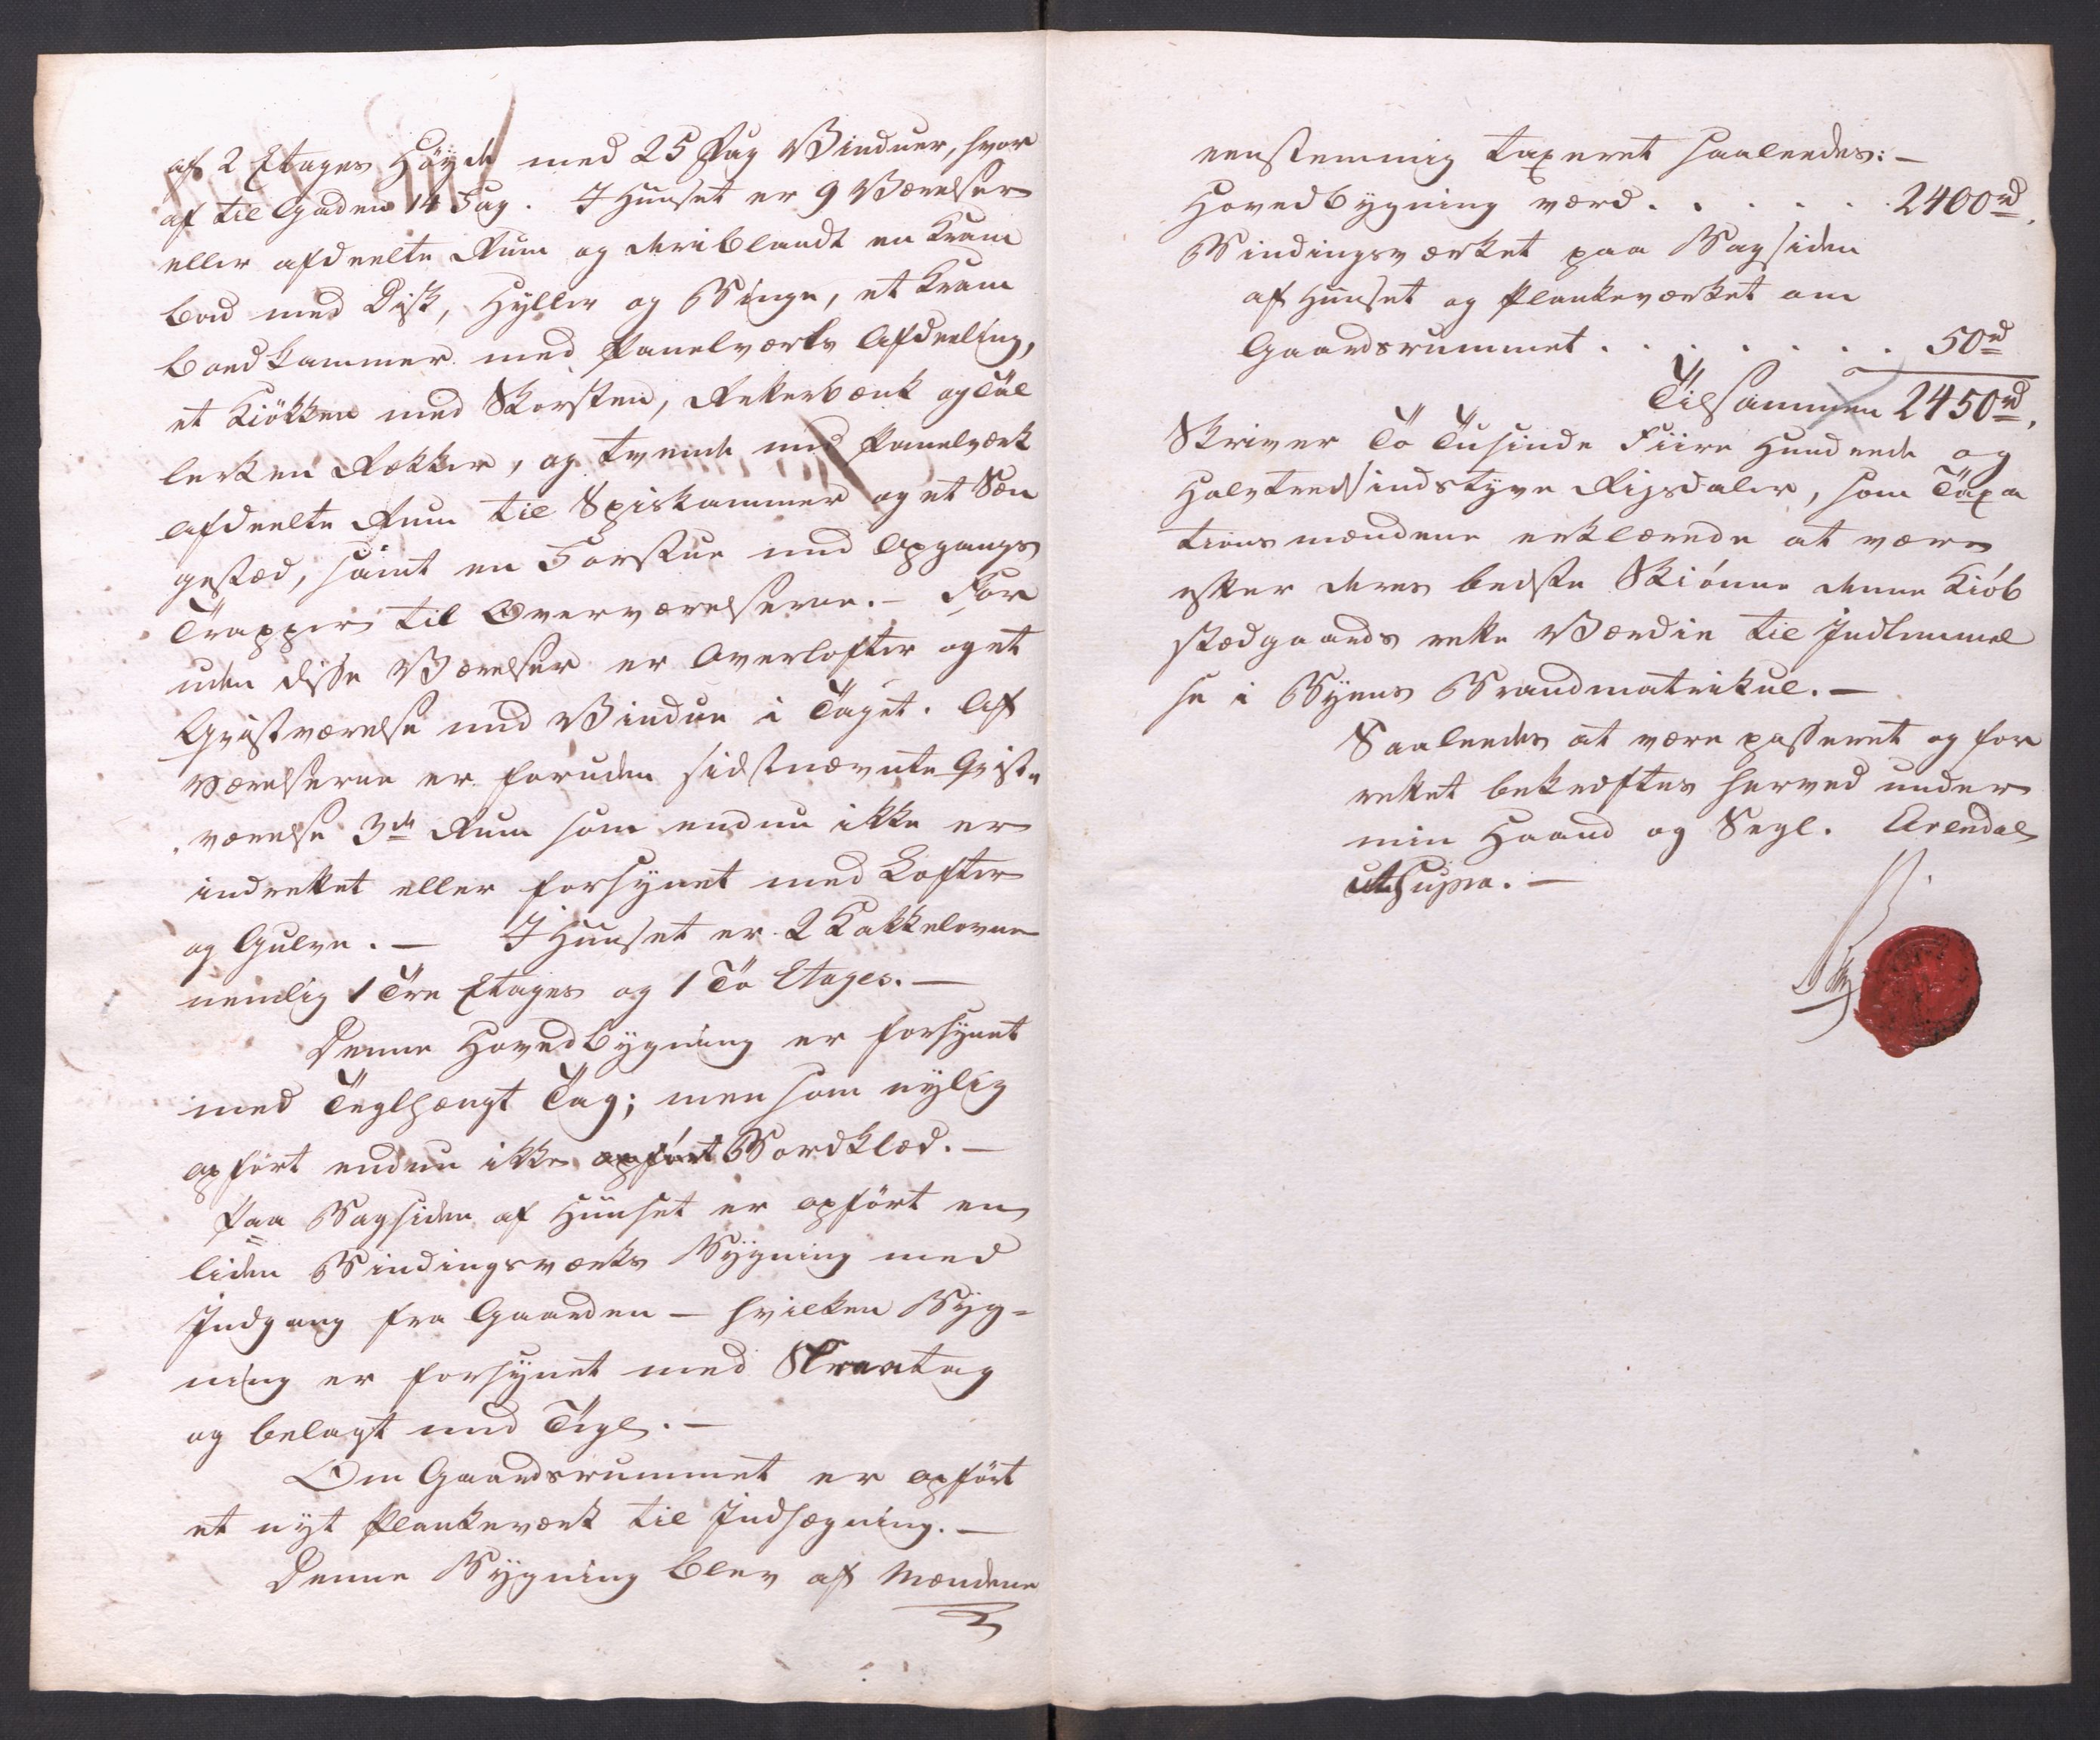 af 2 Etages Höyde med 25 Fag Vinduer, hvor
af til Gaden 14 Fag. I Huuset er 9 Værelser
eller afdeelte Rum og deriblandt en Kram
boed med Disk, Hylder og Binge, et Kram
boedkammer med Panelværks Afdeeling,
et Kiökken med Skorsten, Rekerbænk og Tal
lerken Rækker, og tvende med Panelværk
afdeelte Rum til Spiskammer og et Sæn
gestæd, samt en Forstue med Opgangs
Trapper til Overværelserne. - For
uden disse Værelser er Overlofter og et
Qvistværelse med Vindue i Taget. Af
Værelserne er foruden sidstnævnte Qvist
værelse 3de Rum som endnu ikke er
indrettet eller forsynet med Lofter
og Gulve. — I Huuset er 2 Kakkelovne
nemlig 1 Tre Etages og 1 To Etages. —
Denne Hovedbygning er forsynet
med Teglhængt Tag; men som nylig
opfört endnu ikke opfört Bordklæd. —
Paa Bagsiden af Huuset er opfört en
liden Bindingsværks Bygning med
Indgang fra Gaarden — hvilken Byg=
ning er forsynet med Skraatag
og belagt med Tegl. —
Om Gaardsrummet er opfört
et nyt Plankeværk til Indhægning. —
Denne Bygning blev af Mændene
eenstemmig taxeret saaledes: —
Hovedbygning værd . . . . . . 2400 rd.
Bindingsværket paa Bagsiden
af Huuset og Plankeværket om
Gaardsrummet . . . . . . . 50 rd
Tilsammen 2450 rd.
Skriver To Tusinde Fiire Hundrede og
Halvtredsindstyve Rigsdaler, som Taxa
tionsmændene erklærede at være
efter deres bedste Skiönne denne Kiöb
stædgaards rette Værdie til Indlemmel
se i Byens Brandmatrikul. —
Saaledes at være passeret og for
rettet bekræftes herved under
min Haand og Segl. Arendal
ut supra. —